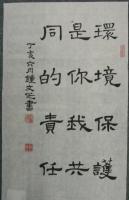 環境保護
是你我共
同的責任
丁亥六月